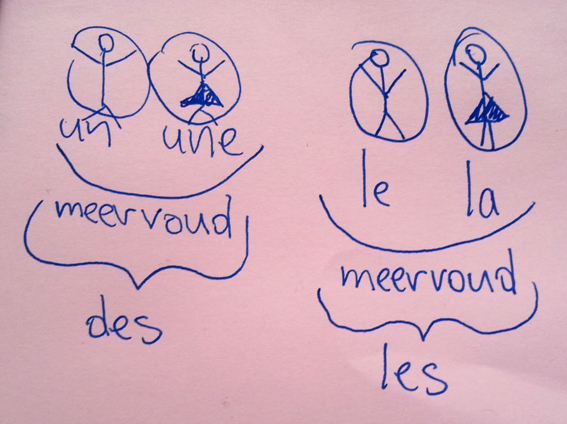 un une
meervoud
des
le la
meervoud
les